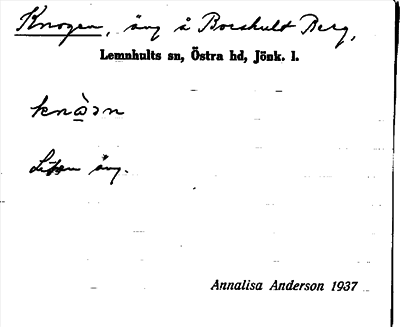 Knogen, äng å Boeshult Berg,
Lemnhults sn, Östra hd, Jönk. l.
knàən
Liten äng.
Annalisa Anderson 1937